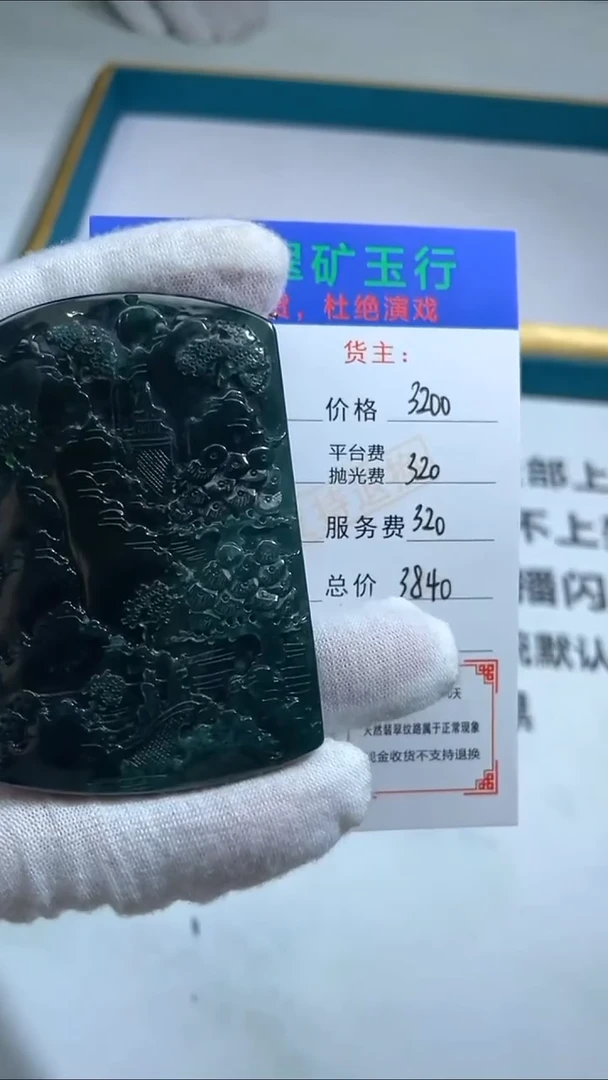 矿玉行
，杜绝演戏
货主：
价格 3200
平台费
抛光费 320
服务费 320
总价 3840
天
天然翡翠纹路属于正常现象
现金收货不支持退换
部上
不上
播闪
默认